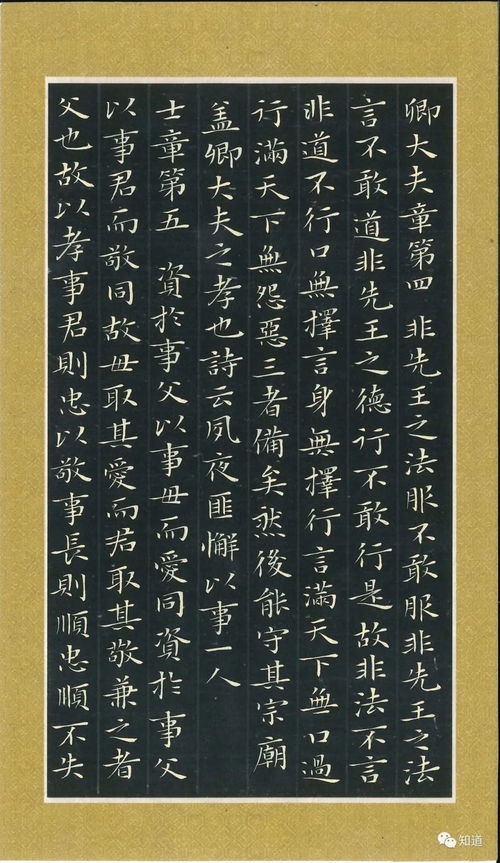 卿大夫章第四 非先王之法服不敢服非先王之法
言不敢道非先王之德行不敢行是故非法不言
非道不行口無擇言身無擇行言滿天下無口過
行滿天下無怨惡三者備矣然後能守其宗廟
盖卿大夫之孝也詩云夙夜匪懈以事一人
士章第五 資於事父以事母而愛同資於事父
以事君而敬同故母取其愛而君取其敬兼之者
父也故以孝事君則忠以敬事長則順忠順不失
知道